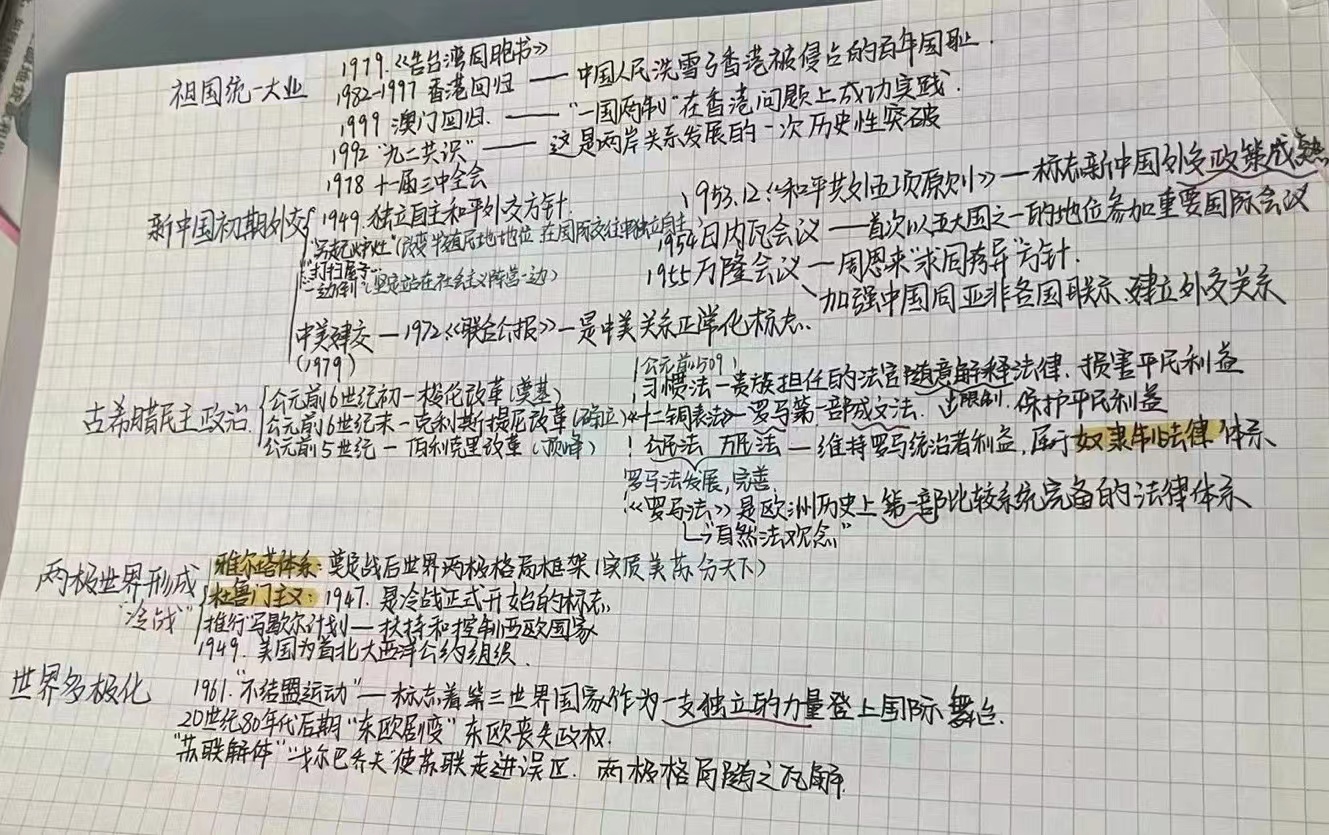 祖国统一大业
1979.《告台湾同胞书》
1982-1997 香港回归 —— 中国人民洗雪了香港被侵占的百年国耻.
1999 澳门回归. —— "一国两制"在香港问题上成功实践.
1992 "九二共识" —— 这是两岸关系发展的一次历史性突破
1978 十一届三中全会
新中国初期外交
1949.独立自主和平外交方针.
"另起炉灶"(改变半殖民地地位 在国际交往中独立自主
"打扫屋子"
一边倒(坚定站在社会主义阵营一边)
1953.12《和平共处五项原则》—标志新中国外交政策成熟
1954日内瓦会议—首次以五大国之一的地位参加重要国际会议
1955万隆会议—周恩来"求同存异"方针.
加强中国同亚非各国联系.建立外交关系
中美建交—1972《联合公报》—是中美关系正常化标志.
(1979)
古希腊民主政治
公元前6世纪初—梭伦改革(奠基)
公元前6世纪末—克利斯提尼改革(确立)
公元前5世纪—伯利克里改革(顶峰)
(公元前509)
习惯法—贵族担任的法官随意解释法律.损害平民利益
《十二铜表法》—罗马第一部成文法.限制.保护平民利益
公民法 万民法—维持罗马统治者利益,属于奴隶制法律体系
罗马法发展,完善.
《罗马法》是欧洲历史上第一部比较系统完备的法律体系
"自然法观念"
两极世界形成
"冷战"
雅尔塔体系:奠定战后世界两极格局框架(实质美苏分天下)
杜鲁门主义:1947.是冷战正式开始的标志.
推行马歇尔计划—扶持和控制西欧国家
1949.美国为首北大西洋公约组织.
世界多极化
1961."不结盟运动"—标志着第三世界国家作为一支独立的力量登上国际舞台.
20世纪80年代后期"东欧剧变"东欧丧失政权.
"苏联解体"戈尔巴乔夫使苏联走进误区.两极格局随之瓦解.